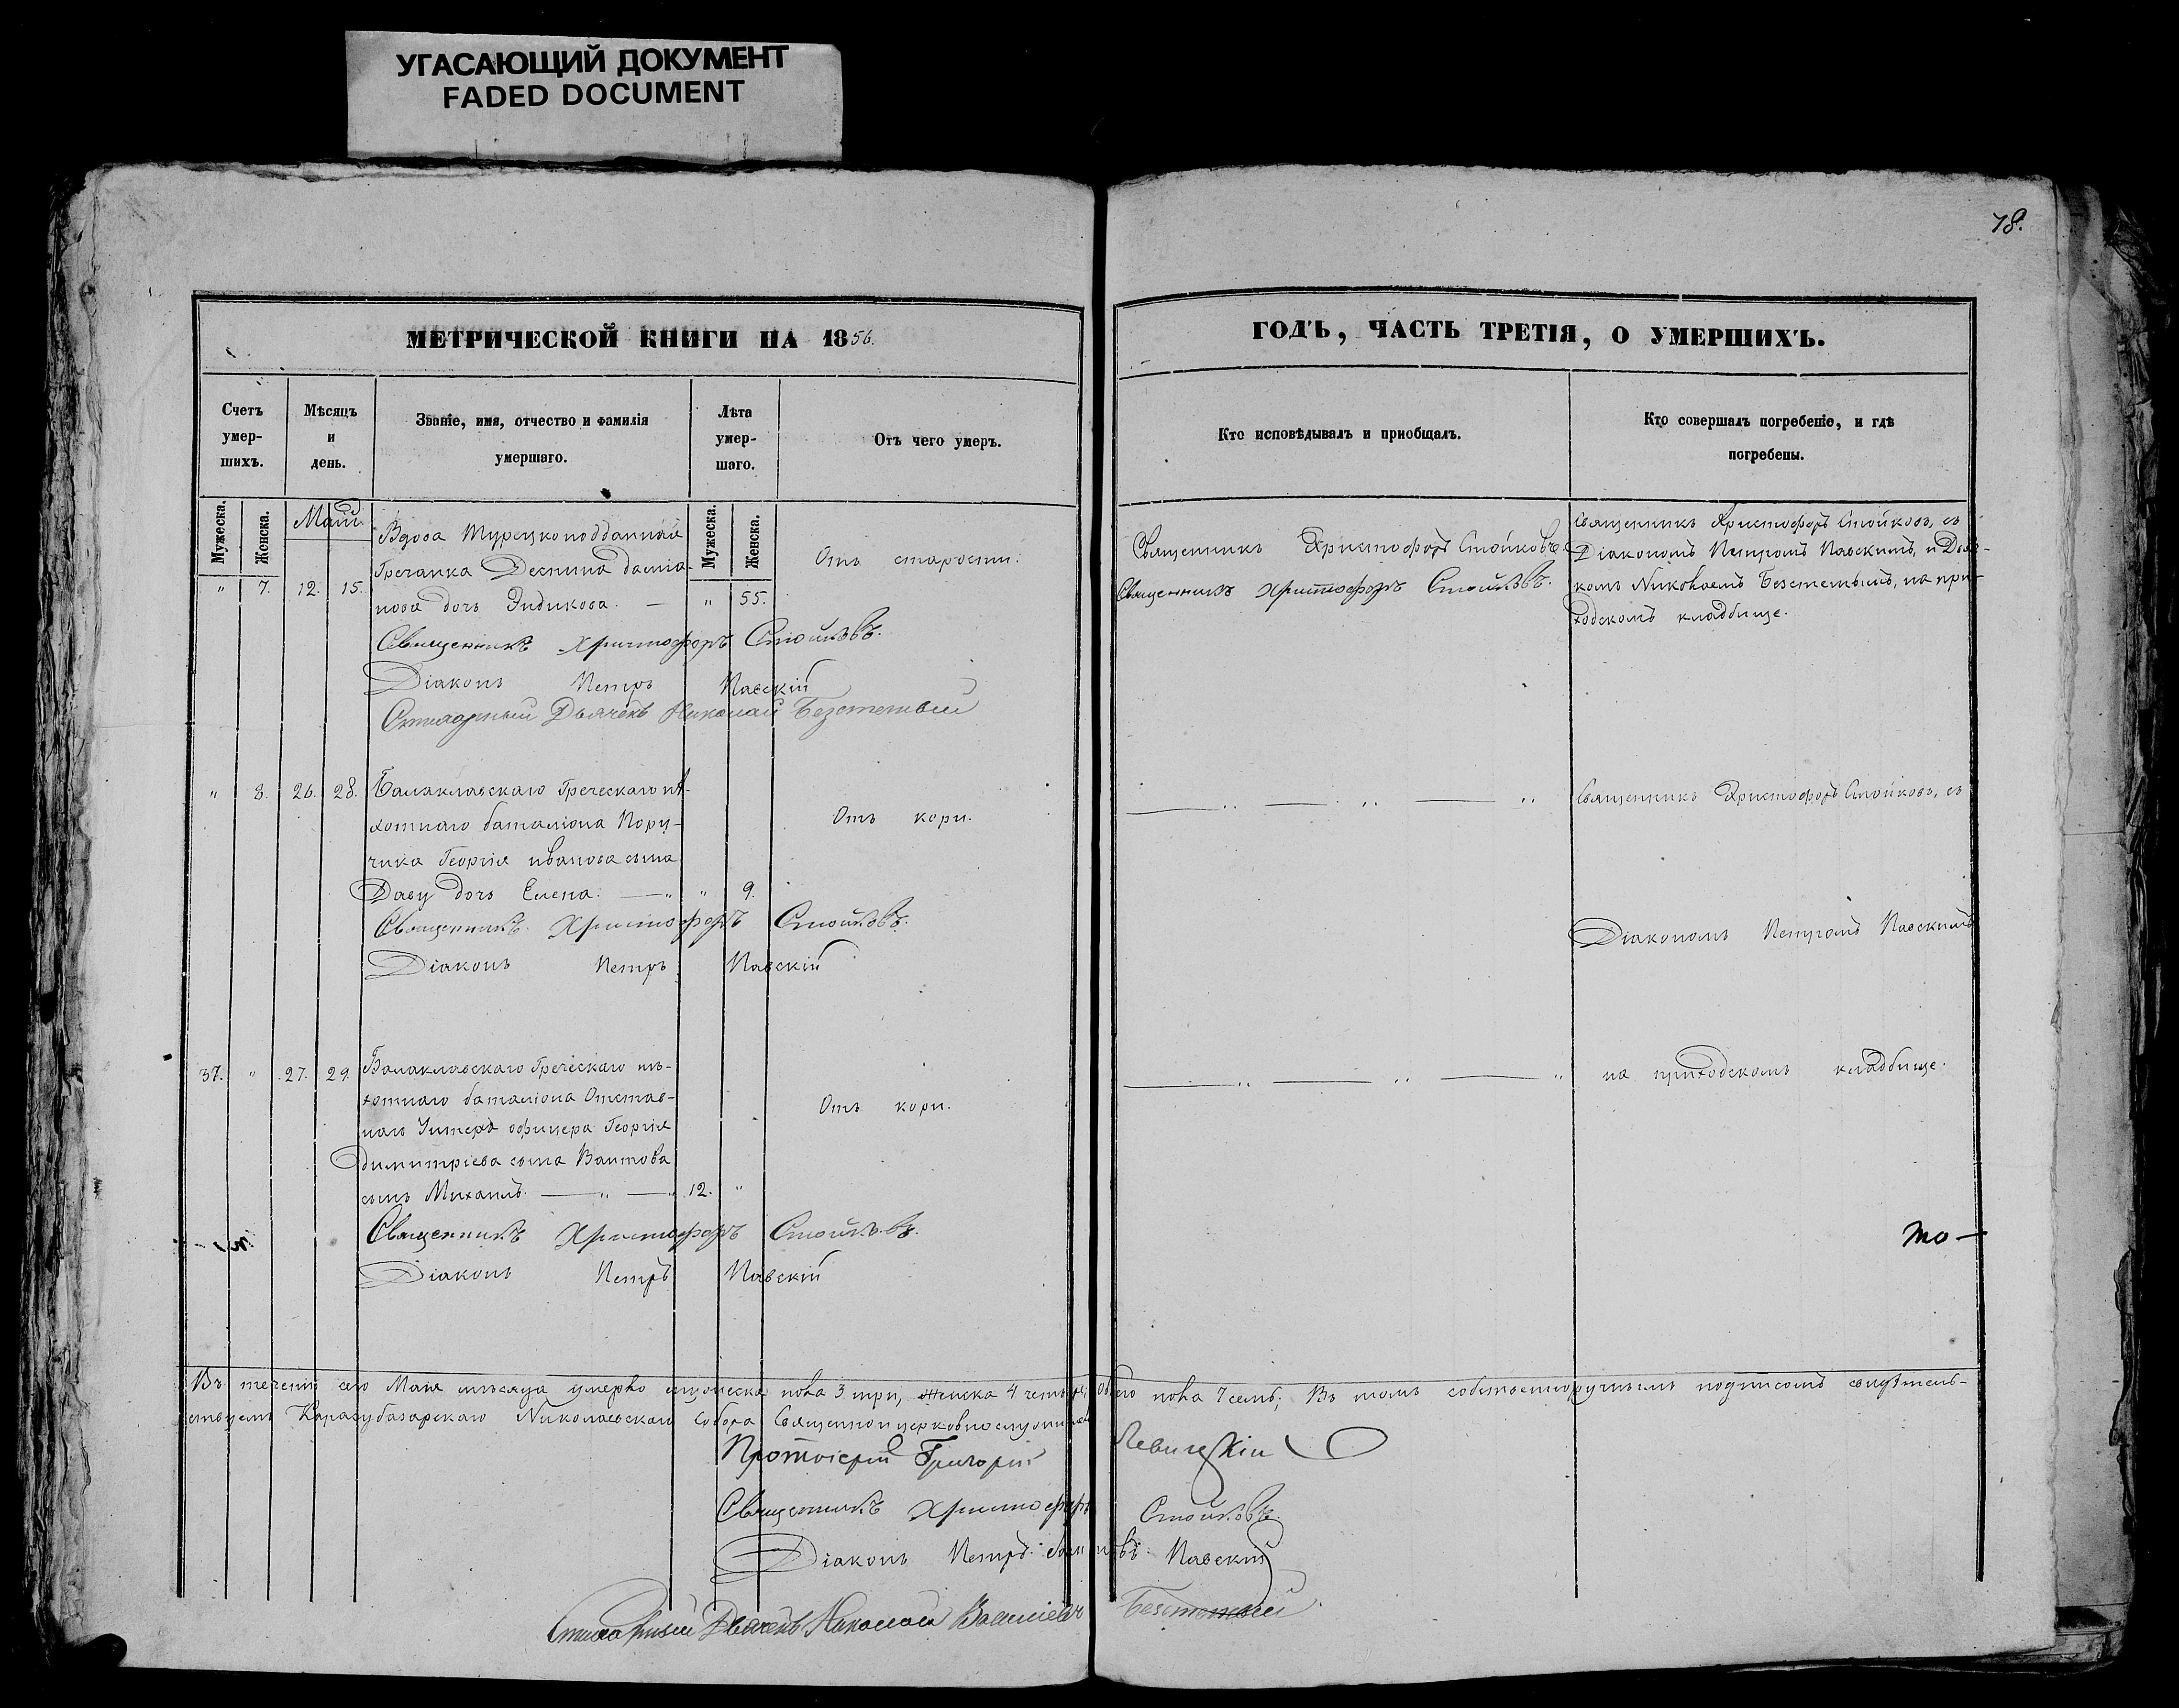 УГАСАЮЩИЙ ДОКУМЕНТ
FADED DOCUMENT
78.
МЕТРИЧЕСКОЙ КНИГИ НА 1856.
ГОДЪ, ЧАСТЬ ТРЕТІЯ, О УМЕРШИХЪ.
Счетъ умер-шихъ.
Мѣсяцъ и день.
Званіе, имя, отчество и фамилія умершаго.
Лѣта умер-шаго.
Отъ чего умеръ.
Кто исповѣдывалъ и приобщалъ.
Кто совершалъ погребеніе, и гдѣ погребены.
Мужеска.
Женска.
Май.
Мужеска.
Женска.
" 7. 12. 15.
Вдова Турецкоподданная
Гречанка Деспина Даміа-
нова дочь Эндикова. — " 55.
Отъ старости.
Священникъ Христофоръ Стойковъ.
Священникъ Христофоръ Стойковъ.
Священникъ Христофоръ Стойковъ, съ
Діакономъ Петромъ Павскимъ, и Дьяч-
комъ Николаемъ Безстетымъ, на при-
ходскомъ кладбище.
Священникъ Христофоръ Стойковъ.
Діаконъ Петръ Павскій
Стихарный Дьячекъ Николай
" 8. 26. 28.
Балаклавскаго Греческаго пѣ-
хотнаго баталіона Пору-
чика Георгія Иванова сына
Даву дочь Елена. — " " 9.
Отъ кори.
— " — " — "
Священникъ Христофоръ Стойковъ, съ
Священникъ Христофоръ Стойковъ.
Діаконъ Петръ Павскій
Діакономъ Петромъ Павскимъ
37. " 27. 29.
Балаклавскаго Греческаго пѣ-
хотнаго баталіона Отстав-
наго Унтеръ офицера Георгія
Димитріева сына Вантова
сынъ Михаилъ. — " — " 12. "
Отъ кори.
— " — " — "
на приходскомъ кладбище.
Священникъ Христофоръ Стойковъ.
Діаконъ Петръ Павскій
то —
Въ теченіи сего Мая мѣсяца умерло мужеска пола 3 три, женска 4 четыре, обоего пола 7 семь; Въ томъ собственноручнымъ подписомъ свидѣтель-
ствуемъ Карасубазарскаго Николаевскаго Собора Священноицерковнослужители
Протоіерей Григорій Левицкій
Священникъ Христофоръ Стойковъ.
Діаконъ Петръ Павскій
Стихарный Дьячекъ Николай